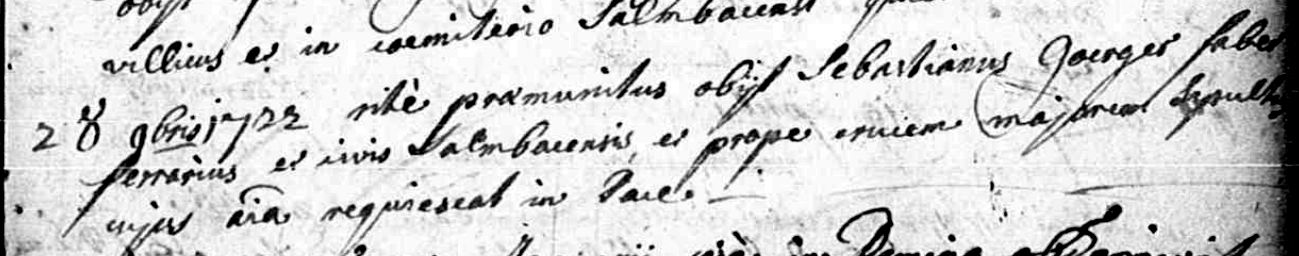 obijt
villicus et in coemiterio Salmbacensi
28 9bris 1722 ritè praemunitus obijt Sebastianus Joerger faber
ferrarius et civis Salmbacensis, et prope crucem majorem sepultus
cujus aia requiescat in Pace.
in Domino